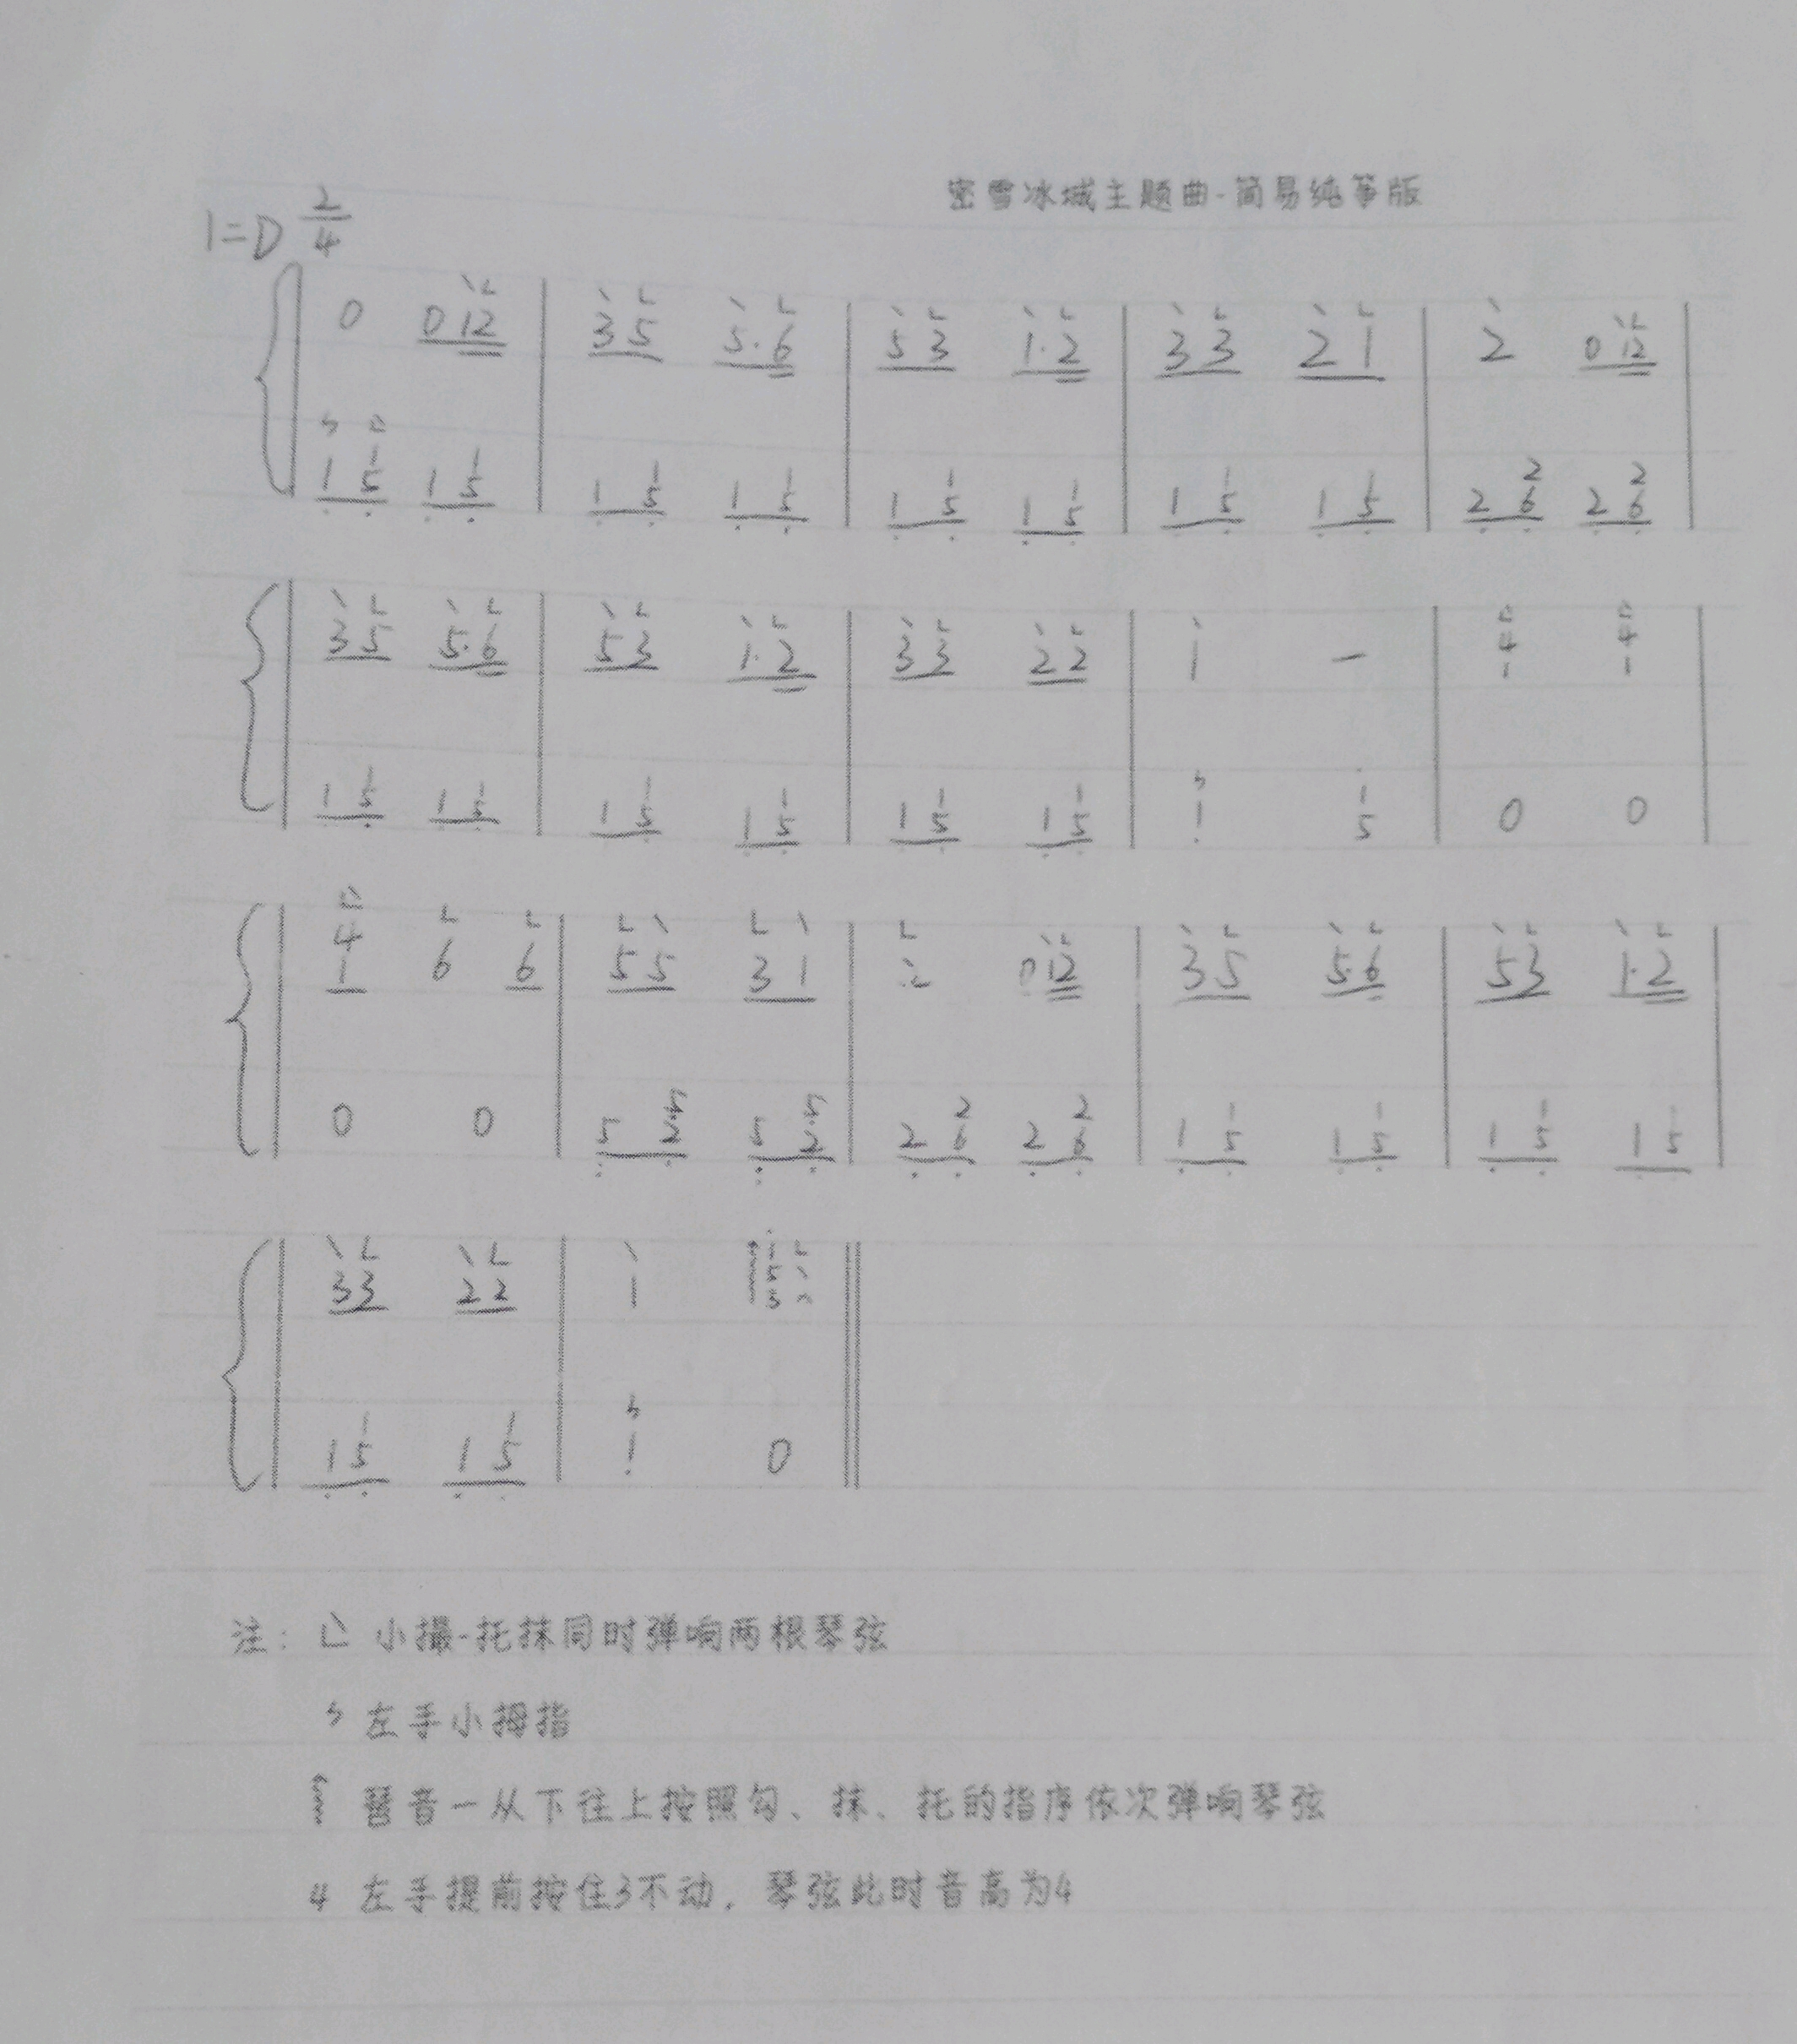 密雪冰城主题曲-简易纯筝版
1=D 2/4
0 0 12 | 3 5 5. 6 | 5 3 1. 2 | 3 3 2 1 | 2 0 12 |
1 5 1 1 5 1 | 1 5 1 1 5 1 | 1 5 1 1 5 1 | 1 5 1 1 5 1 | 2 6 2 2 6 2 |
3 5 5. 6 | 5 3 1. 2 | 3 3 2 2 | 1 - | 4 1 4 1 |
1 5 1 1 5 1 | 1 5 1 1 5 1 | 1 5 1 1 5 1 | 1 5 1 | 0 0 |
4 1 6 6 | 5 5 3 1 | 2 0 12 | 3 5 5. 6 | 5 3 1. 2 |
0 0 | 5 2 5 5 2 5 | 2 6 2 2 6 2 | 1 5 1 1 5 1 | 1 5 1 1 5 1 |
3 3 2 2 | 1 1 5 3 ||
1 5 1 1 5 1 | 1 0 ||
注: 小撮-托抹同时弹响两根琴弦
左手小拇指
琶音-从下往上按照勾、抹、托的指序依次弹响琴弦
4 左手提前按住3不动,琴弦此时音高为4